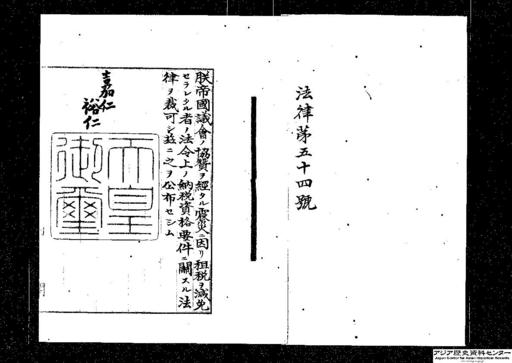 法律第五十四號
朕帝國議會ノ協贊ヲ經タル震災ニ因リ租税ヲ減免
セラレタル者ノ法令上ノ納税資格要件ニ關スル法
律ヲ裁可シ茲ニ之ヲ公布セシム
嘉仁
裕仁
天皇
御璽
アジア歴史資料センター
Japan Center for Asian Historical Records